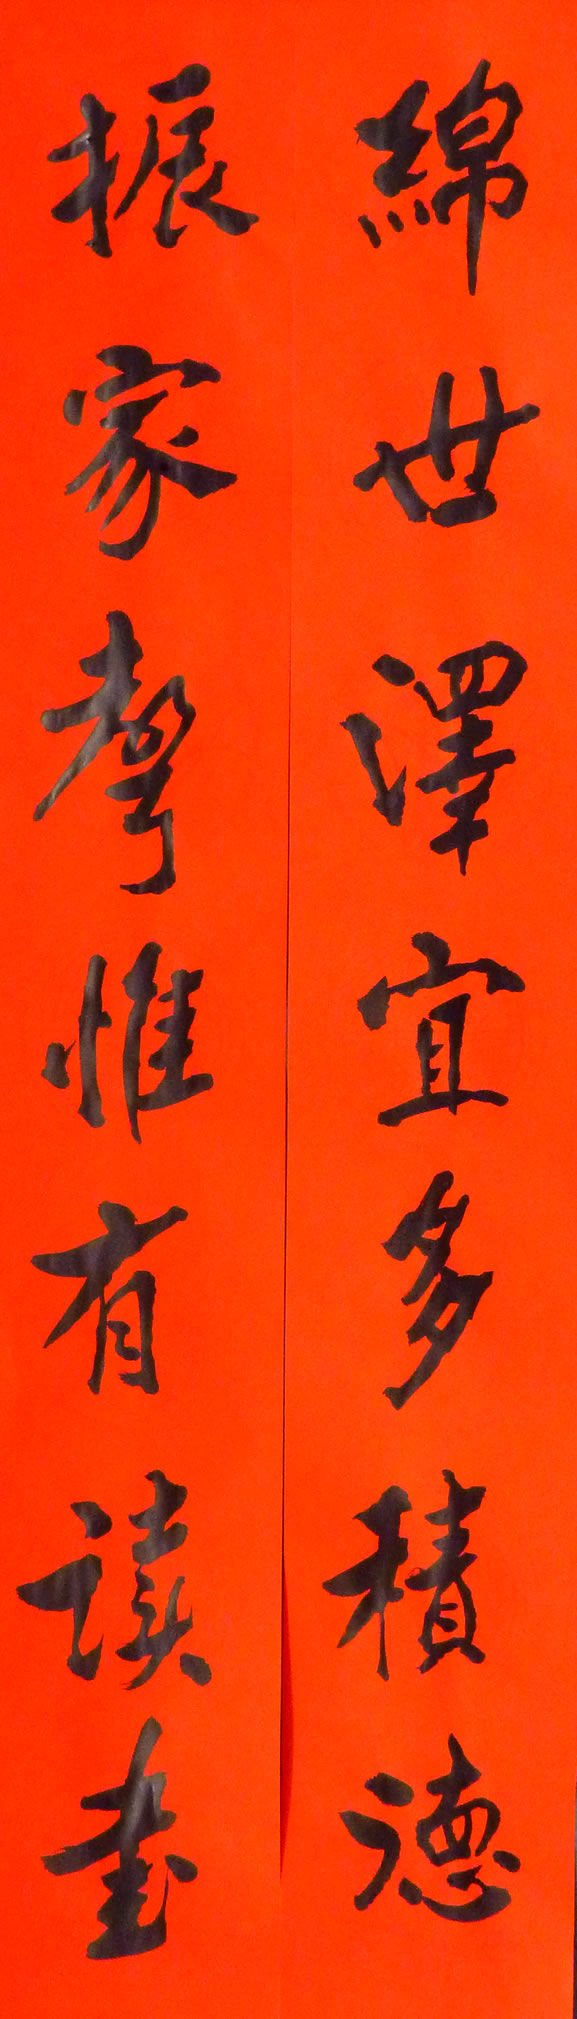 綿世澤宜多積德
振家聲惟有读書